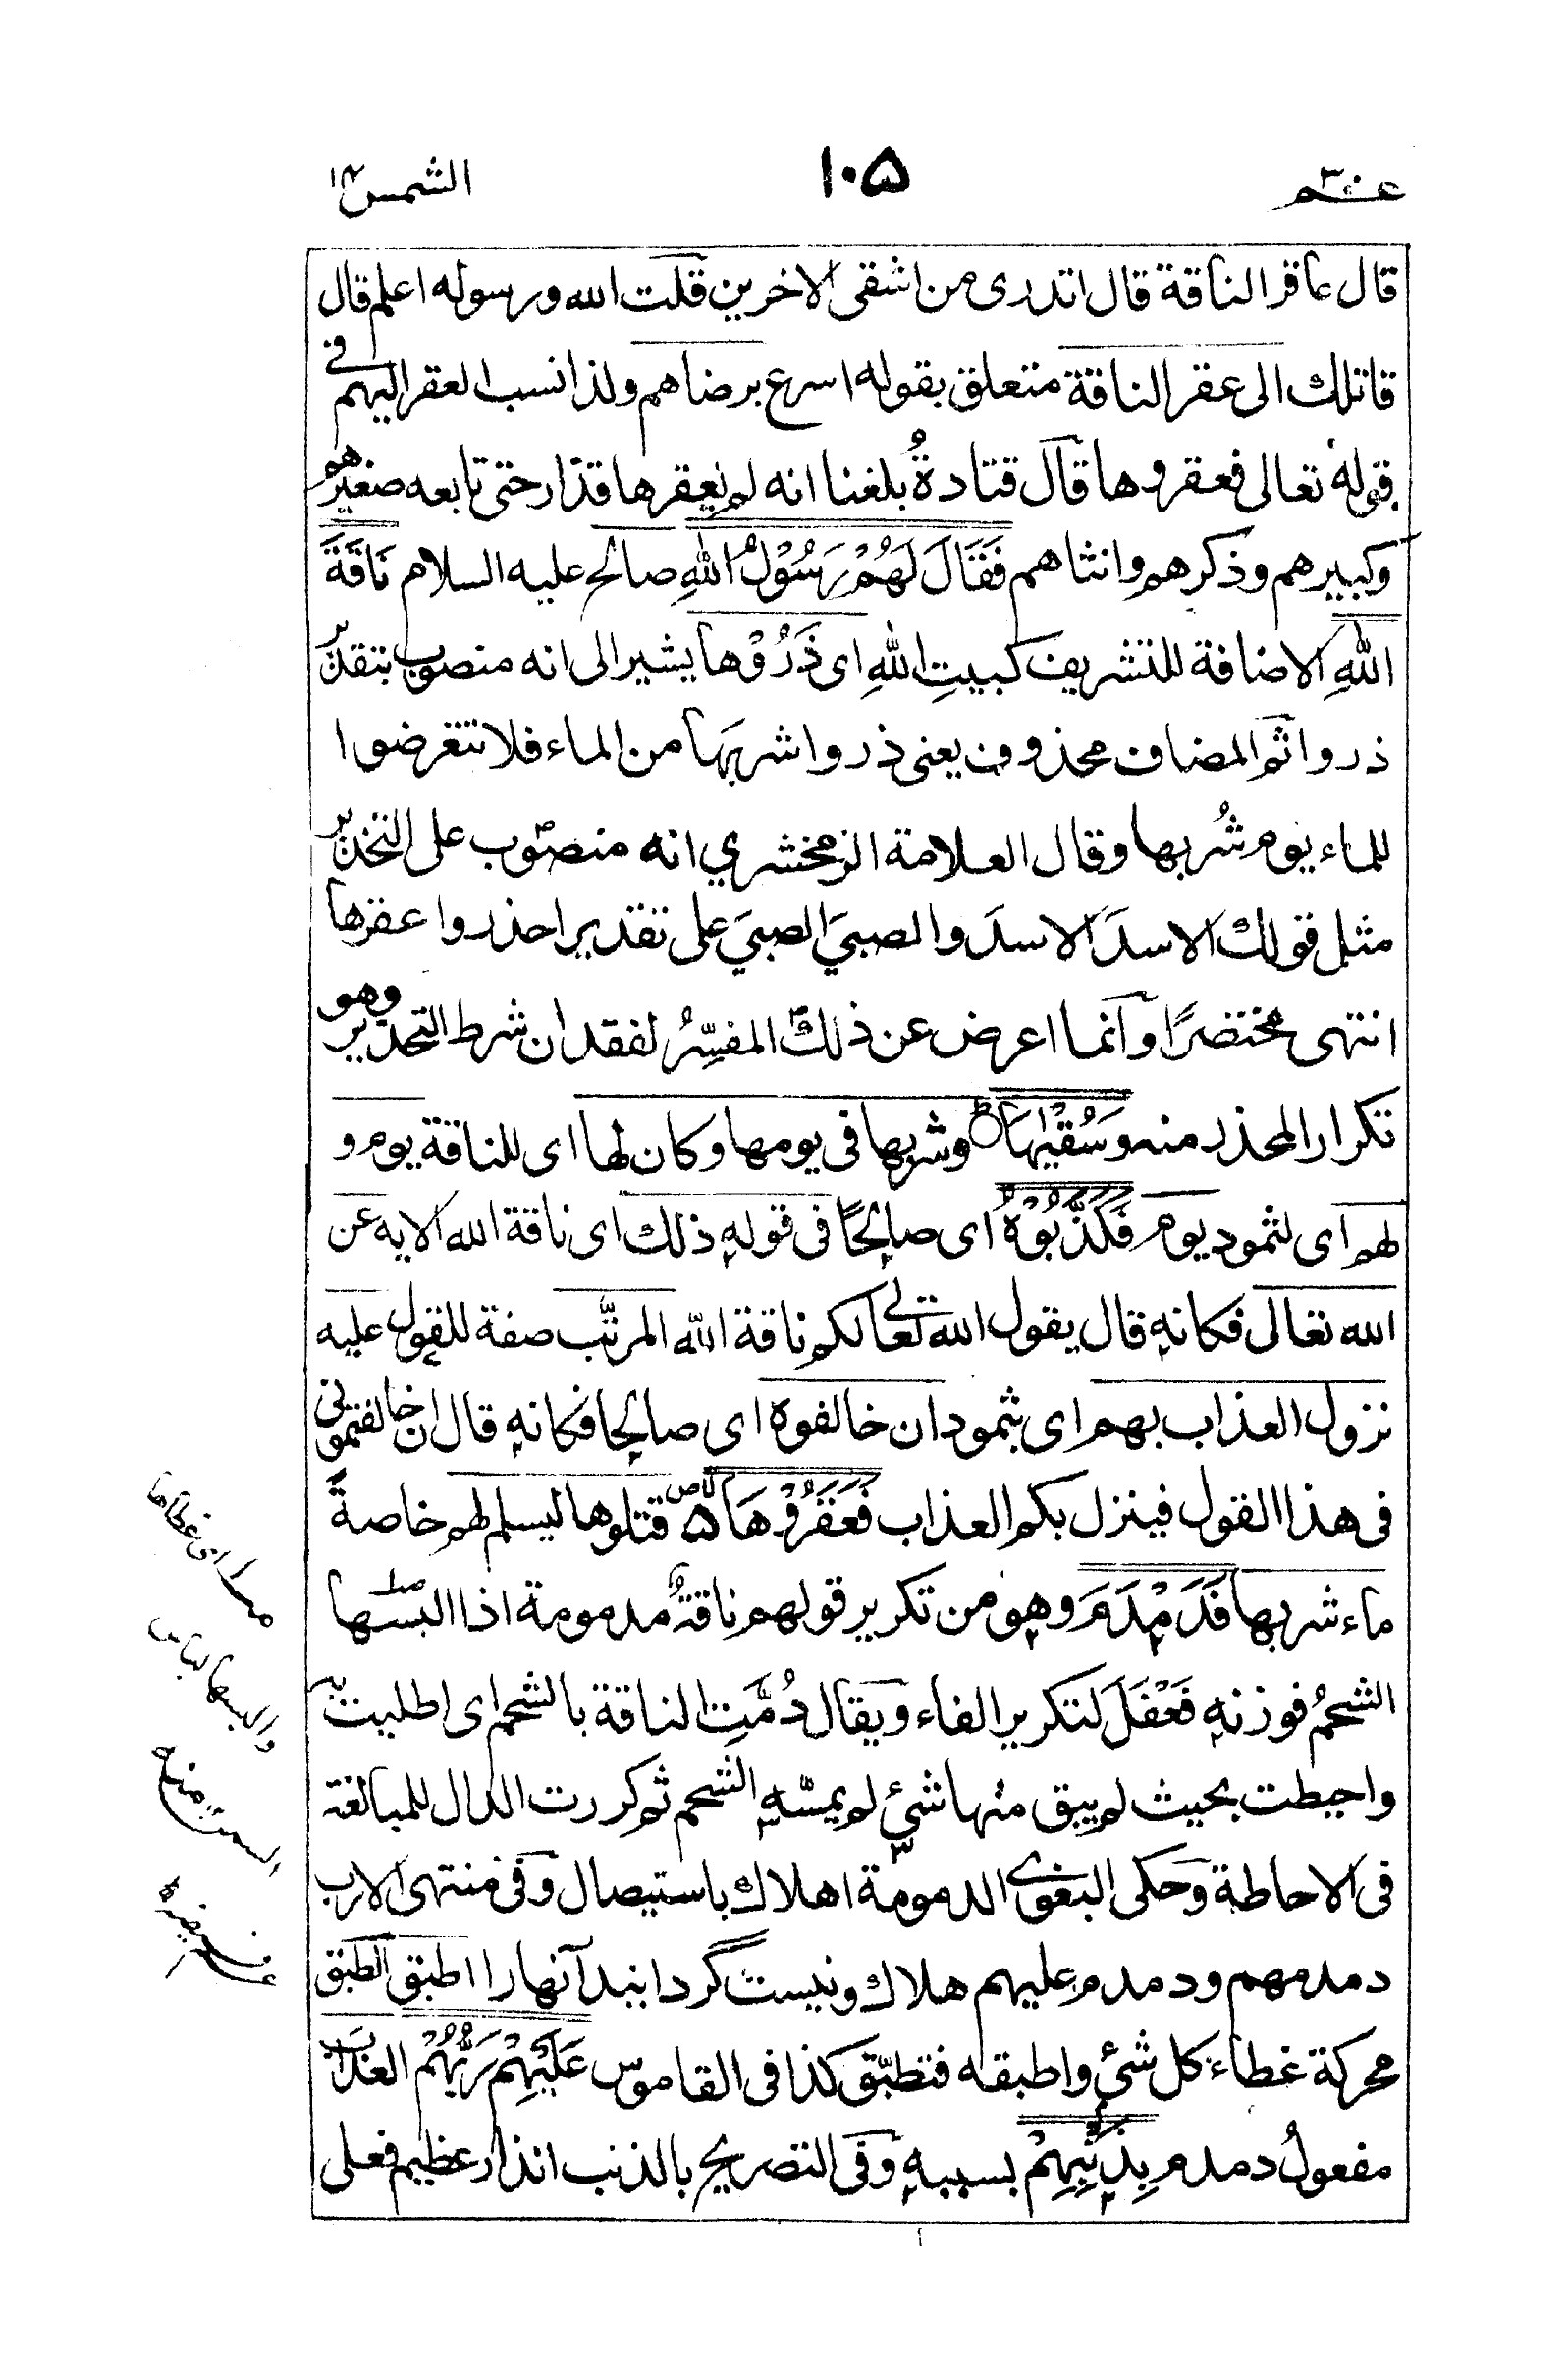 عــم ١٠٥ الشمس
قال عاقر الناقة قال اتدرى من اشقى الاخرين قلت الله ورسوله اعلم قال
قاتلك الى عقر الناقة متعلق بقوله اسرع برضاهم ولذا نسب العقر اليهم فى
قوله تعالى فعقروها قال قتادةُ بلغنا انه لم يعقرها قذار حتى تابعه صغيرهم
وكبيرهم وذكرهم وانثاهم فَقَالَ لَهُمْ رَسُوْلُ اللهِ صالح عليه السلام نَاقَةَ
اللهِ الاضافة للتشريف كبيتِ اللهِ اى ذَرُوْها يشير الى انه منصوب بتقدير
ذروا ثم المضاف محذوف يعنى ذروا شربَها من الماء فلا تتعرضوا
للماء يوم شُربها وقال العلامة الزمخشري انه منصوب على التحذير
مثل قولك الاسدَ الاسدَ والصبيَ الصبيَ على تقدير احذروا عقرها
انتهى مختصرًا وانما اعرض عن ذلك المفسِّرُ لفقدان شرط التحذير وهو
تكرار المحذر منه وَسُقْيٰهَا وشربها فى يومها وكان لها اى للناقة يوم و
لهم اى لثمود يوم فَكَذَّبُوْهُ اى صالحًا فى قوله ذلك اى ناقة الله الايه عن
الله تعالى فكانه قال يقول الله تعالى لكم ناقة الله المرتَّب صفة للقول عليه
نزول العذاب بهم اى بثمود ان خالفوه اى صالحا فكانه قال ان خالفتمونى
فى هذا القول فينزل بكم العذاب فَعَقَرُوْهَا ۵ قتلوها ليسلم لهم خاصةً
ماء شربها فَدَمْدَمَ وهو من تكرير قولهم ناقةٌ مدمومة اذا البسها
الشحمُ فوزنه فَعْفَلَ لتكرير الفاء ويقال دُمَّتِ الناقة بالشحم اى اطليت به
واحيطت بحيث لم يبق منها شئ لم يمسّه الشحم ثم كررت الدال للمبالغة
فى الاحاطة وحكى البغوى الدمومة اهلاك باستيصال وفى منتهى الارب
دمدمهم ودمدم عليهم هلاك ونيست گردانيد آنها را اطبق الطبق
محركة غطاء كل شئ واطبقه فتطبّق كذا فى القاموس عَلَيْهِمْ رَبُّهُمْ العذابَ
مفعولُ دمدم بِذَنْبِهِمْ بسببه وفى التصريح بالذنب انذار عظيم فعلى